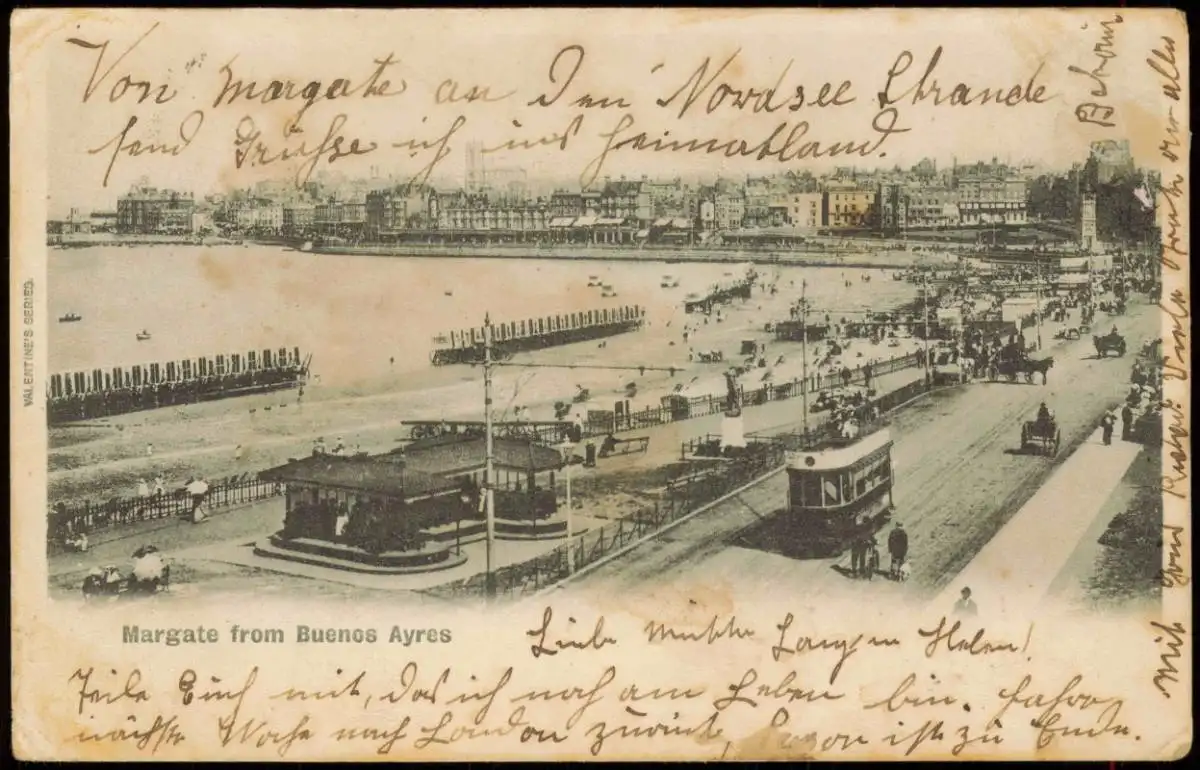 Von Margate an den Nordsee Strande
send Grüsse ich ins Heimathland.
VALENTINE'S SERIES
Margate from Buenos Ayres
Liebe
Helen!
Teile Euch mit, das ich noch am Leben bin. fahre
nächste Woche nach London zurück, ist zu Ende.
Mit
alles